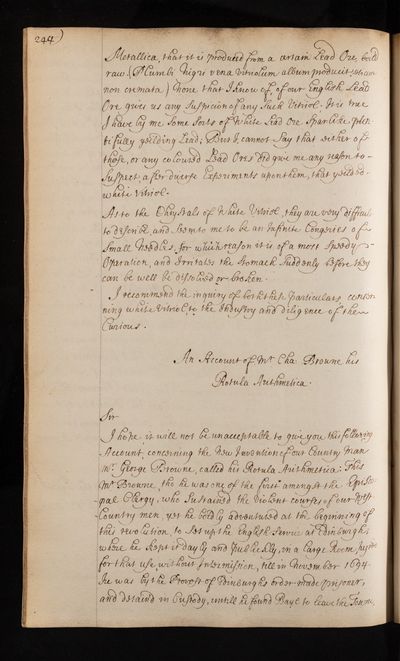 244)
Metallica, that it is produced from a certain Lead Ore boil'd
raw (Plumbi Nigri vena Vitriolum album producit, etiam
non cremata) None that I know of, of our English Lead
Ore gives us any Suspicion of any such Vitriol. It is true
I have by me Some Sorts of White Lead Ore Sparlike plen-
tifully yeilding Lead; But I cannot Say that either of
those, or any coloured Lead Ores did give me any reason to
Suspect after diverse Experiments upon them, that yeilded
white Vitriol.
As to the Chrystals of White Vitriol, they are very difficult
to describe, and Seem to me to be an Infinite Congeries of
Small Needles, for which reason it is of a most Speedy
Operation, and Irritates the Stomack Suddenly before they
can be well be dissolved or broken.
I recommend the inquiry of both these particulars, concer-
ning white Vitriol, to the Industry and diligence of the
Curious.
An Account of Mr Cha: Browne his
Rotula Arithmetica.
Sir
I hope it will not be unacceptable to give you this following
Account, concerning the New Invention of our Country man
Mr. George Browne, called his Rotula Arithmetica: This
Mr Browne, tho he was one of the first amongst the Episco-
pal Clergy, who Sustained the Violent courses of our West
Country men yet he boldly adventured at the beginning of
this revolution, to Set up the English Service at Edinburgh,
where he kept it dayly and publickly, in a large Room,
for that use, without Intermission, till in November 1694.
he was by the Provost of Edinburghs order made prisoner,
and detaind in Custody, untill he found Bayl to leave the Town,